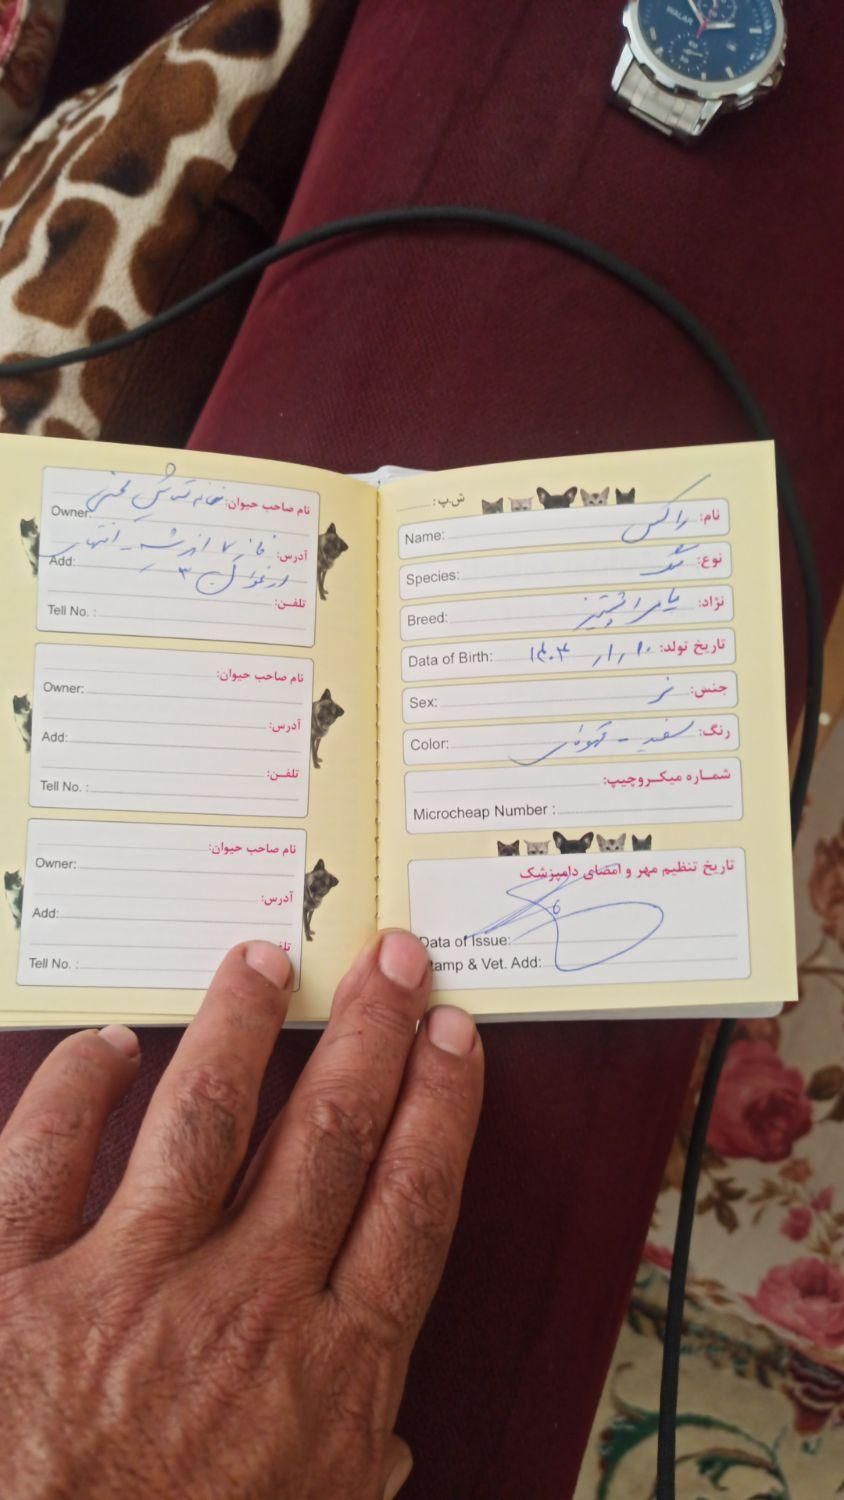 WALAR
ش.پ:
نام: راکس
Name:
نوع: سگ
Species:
نژاد:
Breed:
تاریخ تولد:
Data of Birth:
جنس: نر
Sex:
رنگ: سفید - قهوه‌ای
Color:
شماره میکروچیپ:
Microcheap Number :
تاریخ تنظیم مهر و امضای دامپزشک
Data of Issue:
tamp & Vet. Add:
نام صاحب حیوان:
Owner:
آدرس: فاز ۷
Add:
تلفن:
Tell No. :
نام صاحب حیوان:
Owner:
آدرس:
Add:
تلفن:
Tell No. :
نام صاحب حیوان:
Owner:
آدرس:
Add:
Tell No. :